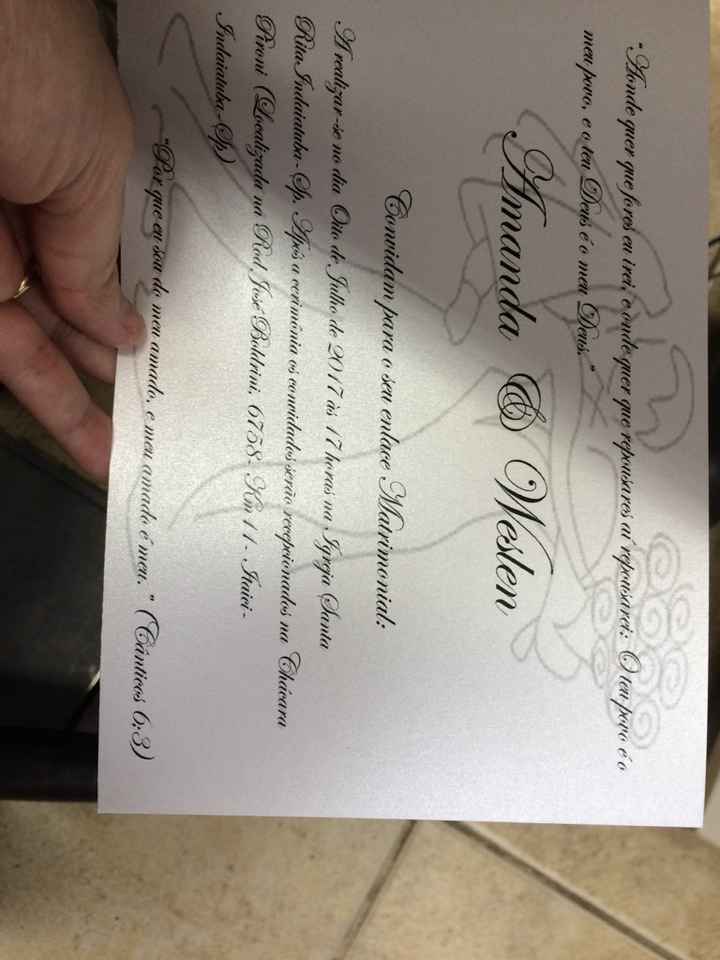 "Aonde quer que fores eu irei, e onde quer que repousares aí repousarei: O teu povo é o
meu povo, e o teu Deus é o meu Deus."
Amanda & Weslen
Convidam para o seu enlace Matrimonial:
A realizar-se no dia Oito de Julho de 2017 às 17 horas na Igreja Santa
Rita Indaiatuba-Sp. Após a cerimônia os convidados serão recepcionados na Chácara
Pironi (Localizada na Rod. José Boldrini, 6758- Km 11 - Itaici -
Indaiatuba-Sp)
"Por que eu sou do meu amado, e meu amado é meu. " (Cânticos 6:3)